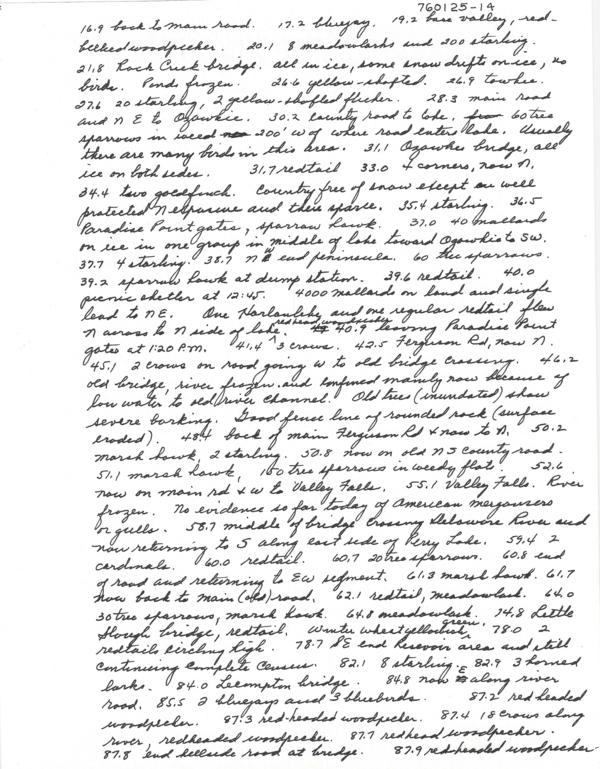 760125-14
16.9 back to main road. 17.2 bluejay. 19.2 base valley, red-
bellied woodpecker. 20.1 8 meadowlarks and 200 starling.
21.8 Rock Creek bridge. all in ice, some snow drifts on ice, no
birds. Ponds frozen. 26.6 yellow-shafted. 26.9 towhee.
27.6 20 starling, 2 yellow-shafted flicker. 28.3 main road
and N E to Ozawkie. 30.2 county road to lake. 60 tree
sparrows in weed 200' W of where road enters lake. Usually
there are many birds in this area. 31.1 Ozawkee bridge, all
ice on both sides. 31.7 redtail 33.0 4 corners, now N.
34.4 two goldfinch. Country free of snow except on well
protected N exposure and there sparce. 35.4 starling. 36.5
Paradise Point gates, sparrow hawk. 37.0 40 mallards
on ice in one group in middle of lake toward Ozawkie to SW.
37.7 4 starling. 38.7 N W end peninsula. 60 tree sparrows.
39.2 sparrow hawk at dump station. 39.6 redtail. 40.0
picnic shelter at 12:45. 4000 mallards on land and single
lead to NE. One Harlansky and one regular redtail flew
N across to N side of lake. redhead woodpecker 40.9 leaving Paradise Point
gates at 1:20 P.M. 41.4 3 crows. 42.5 Ferguson Rd, now N.
45.1 2 crows on road going W to old bridge crossing. 46.2
old bridge, river frozen and confined mainly now because of
low water to old river channel. Old tree (inundated) show
severe barking. Good fence line of rounded rock (surface
eroded). 48.4 back of main Ferguson Rd & now to N. 50.2
marsh hawk, 2 starling. 50.8 now on old N S county road.
51.1 marsh hawk, 150 tree sparrows in weedy flat. 52.6
now on main rd & W to Valley Falls. 55.1 Valley Falls. River
frozen. No evidence so far today of American mergansers
or gulls. 58.7 middle of bridge crossing Delaware River and
now returning to S along east side of Perry Lake. 59.4 2
cardinals. 60.0 redtail. 60.7 20 tree sparrows. 60.8 end
of road and returning to EW segment. 61.3 marsh hawk. 61.7
now back to main (old) road. 62.1 redtail, meadowlark. 64.0
30 tree sparrows, marsh hawk. 64.8 meadowlark. 74.8 Little
Slough bridge, redtail. Winter wheat yellowish green. 78.0 2
redtails circling high. 78.7 SE end Reservoir area and still
continuing complete census. 82.1 8 starling. 82.9 3 horned
larks. 84.0 Lecompton bridge. 84.8 now E along river
road. 85.5 2 bluejays and 3 bluebirds. 87.2 red headed
woodpecker. 87.3 red-headed woodpecker. 87.4 18 crows along
river, redheaded woodpecker. 87.7 redhead woodpecker.
87.8 end hillside road at bridge. 87.9 red-headed woodpecker